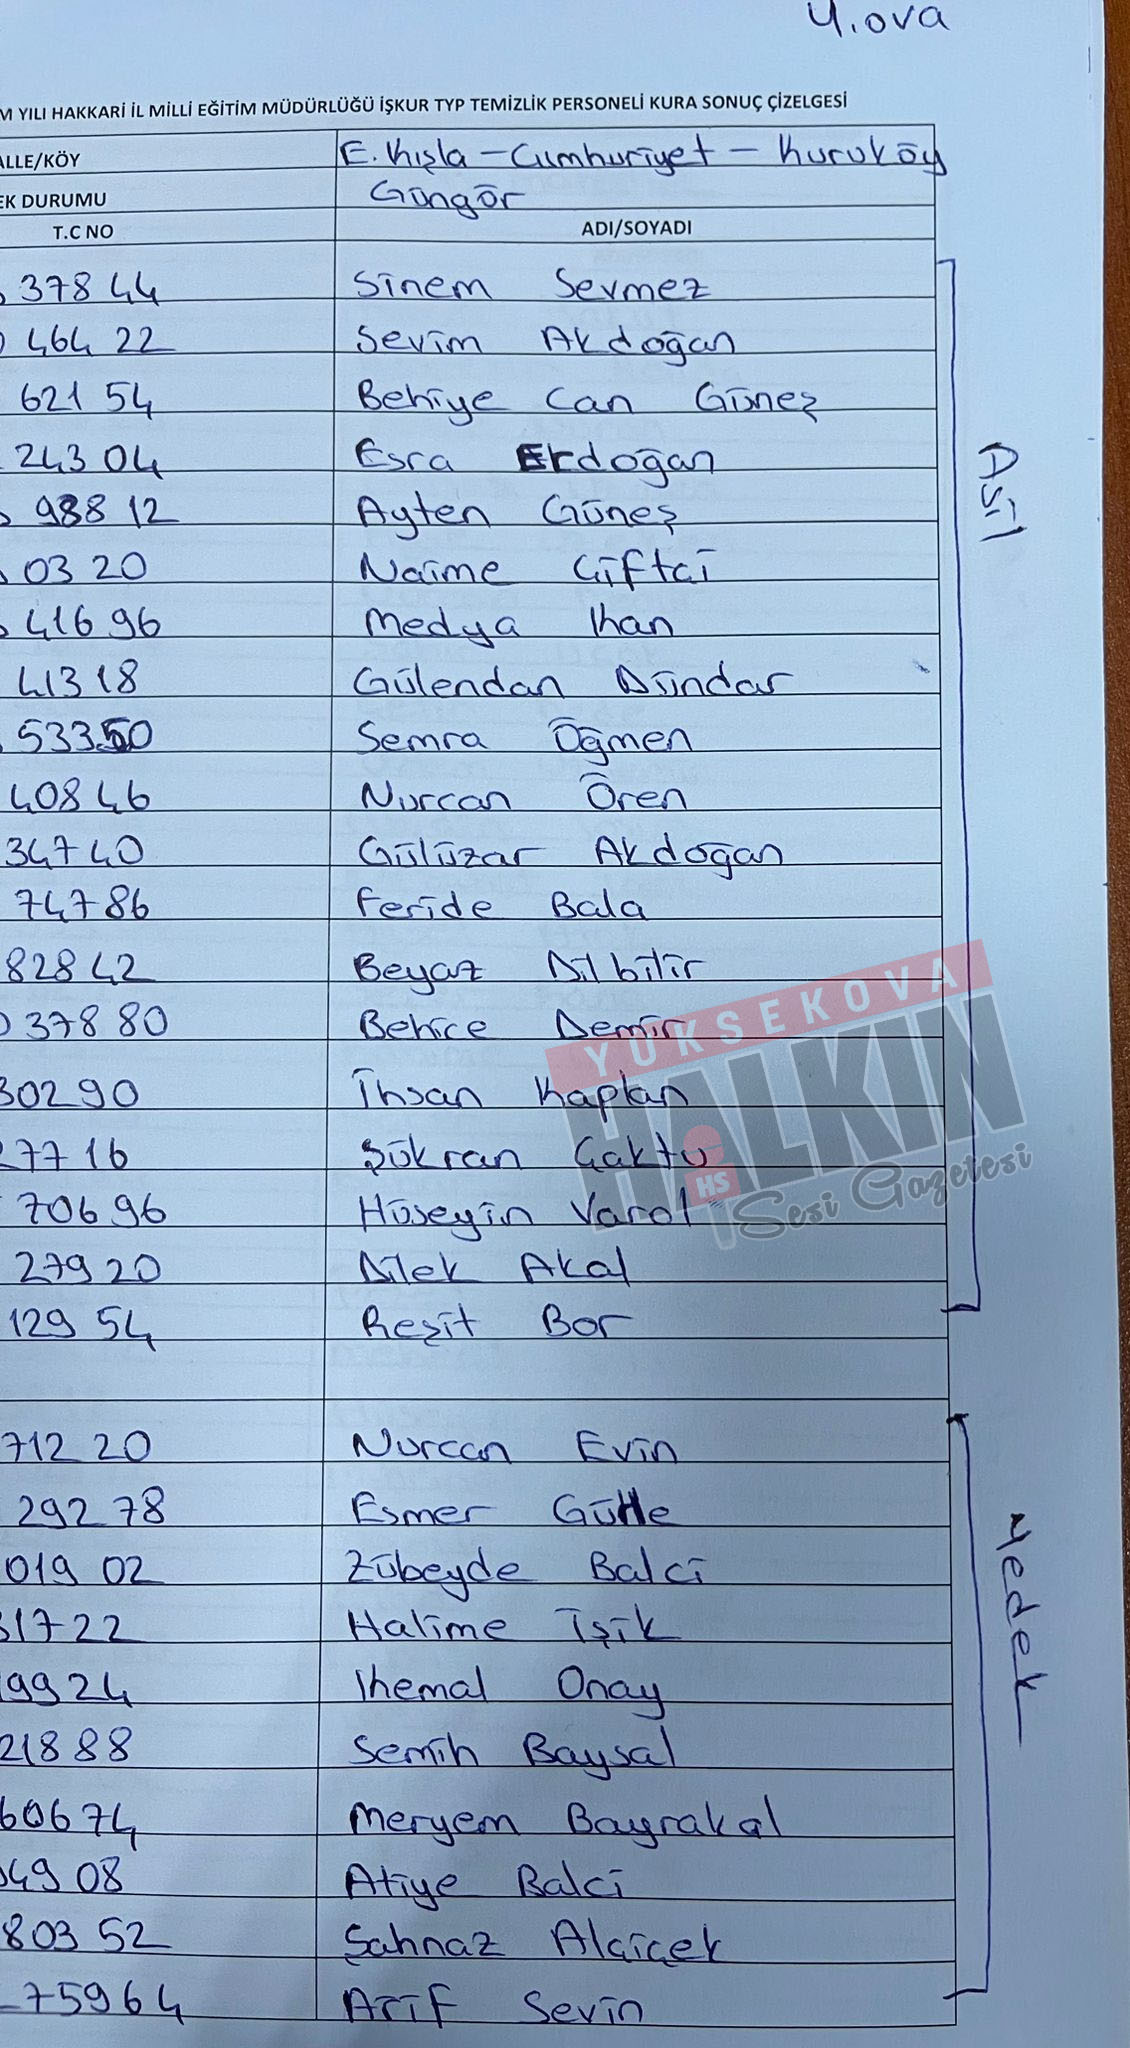 Y.ova
M YILI HAKKARİ İL MİLLİ EĞİTİM MÜDÜRLÜĞÜ İŞKUR TYP TEMİZLİK PERSONELİ KURA SONUÇ ÇİZELGESİ
ALLE/KÖY E. Kışla - Cumhuriyet - Kuruköy
EK DURUMU Güngör
T.C NO ADI/SOYADI
37844 Sinem Sevmez
46422 Sevim Akdoğan
62154 Behiye Can Güneş
24304 Esra Erdoğan
98812 Ayten Güneş
03 20 Naime Çiftçi
41696 Medya
41318 Gülendan Dündar
53350 Semra Öğmen
40846 Nurcan Ören
34740 Gülüzar Akdoğan
74786 Feride Bala
82842 Beyaz Dilbilir
37880 Behice Demir
30290 İhsan Kaplan
27716 Şükran
70696 Hüseyin Varol
27920 Dilek Akal
129 54 Reşit Bor
Asil
712 20 Nurcan Evin
292 78 Esmer
019 02 Zübeyde Balci
31722 Halime İşik
19924 Onay
21888 Semih Baysal
60674 Meryem Bayrakal
04908 Atiye Balci
80352 Şahnaz Alçiçek
75964 Arif Sevin
Yedek
YÜKSEKOVA
HALKIN
HS
Sesi Gazetesi